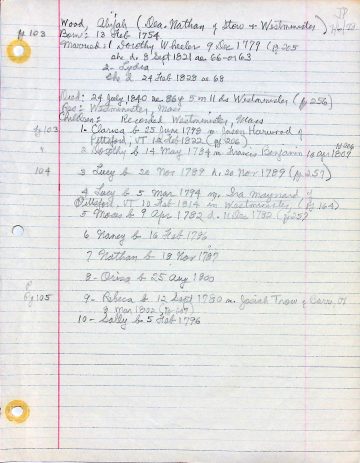 Wood, Abijah (Dea. Nathan of Stow & Westminster)
pg 103 Born: 13 Feb 1754
Married: 1 Dorothy Wheeler 9 Dec 1779 (pg 205
she d. 8 Sept 1821 ae 66-0-63
2 - Lydia
she d 24 Feb 1828 ae 68
Died: 24 July 1840 ae 86y 5 m 11 ds Westminster (pg 256)
Res: Westminster, Mass
Children: Recorded Westminster, Mass
pg 103 1- Clarisa b 25 June 1798 m Jason Harwood of
Pittsford, VT 12 Feb 1822 (pg 206)
" 2 Dorothy b 14 May 1784 m Francis Benjamin 10 Apr 1809
pg 206
104 3 Lucy b 20 Nov 1789 d. 20 Nov 1789 (pg 257)
4 Lucy b 5 Mar 1794 m. Ira Maynard of
Pittsford, VT 10 Feb 1814 in Westminster (pg 164)
5 Moses b 9 Apr 1782 d. 11 Dec 1782 (pg 257
6 Nancy b 16 Feb
7 Nathan b 18 Nov 1787
8- Orise b 25 Aug 1800
pg 105 9- Rebeca b 12 Sept 1780 m. Josiah Trow of
8 Mar 1802
10- Sally b 5 Feb 1796